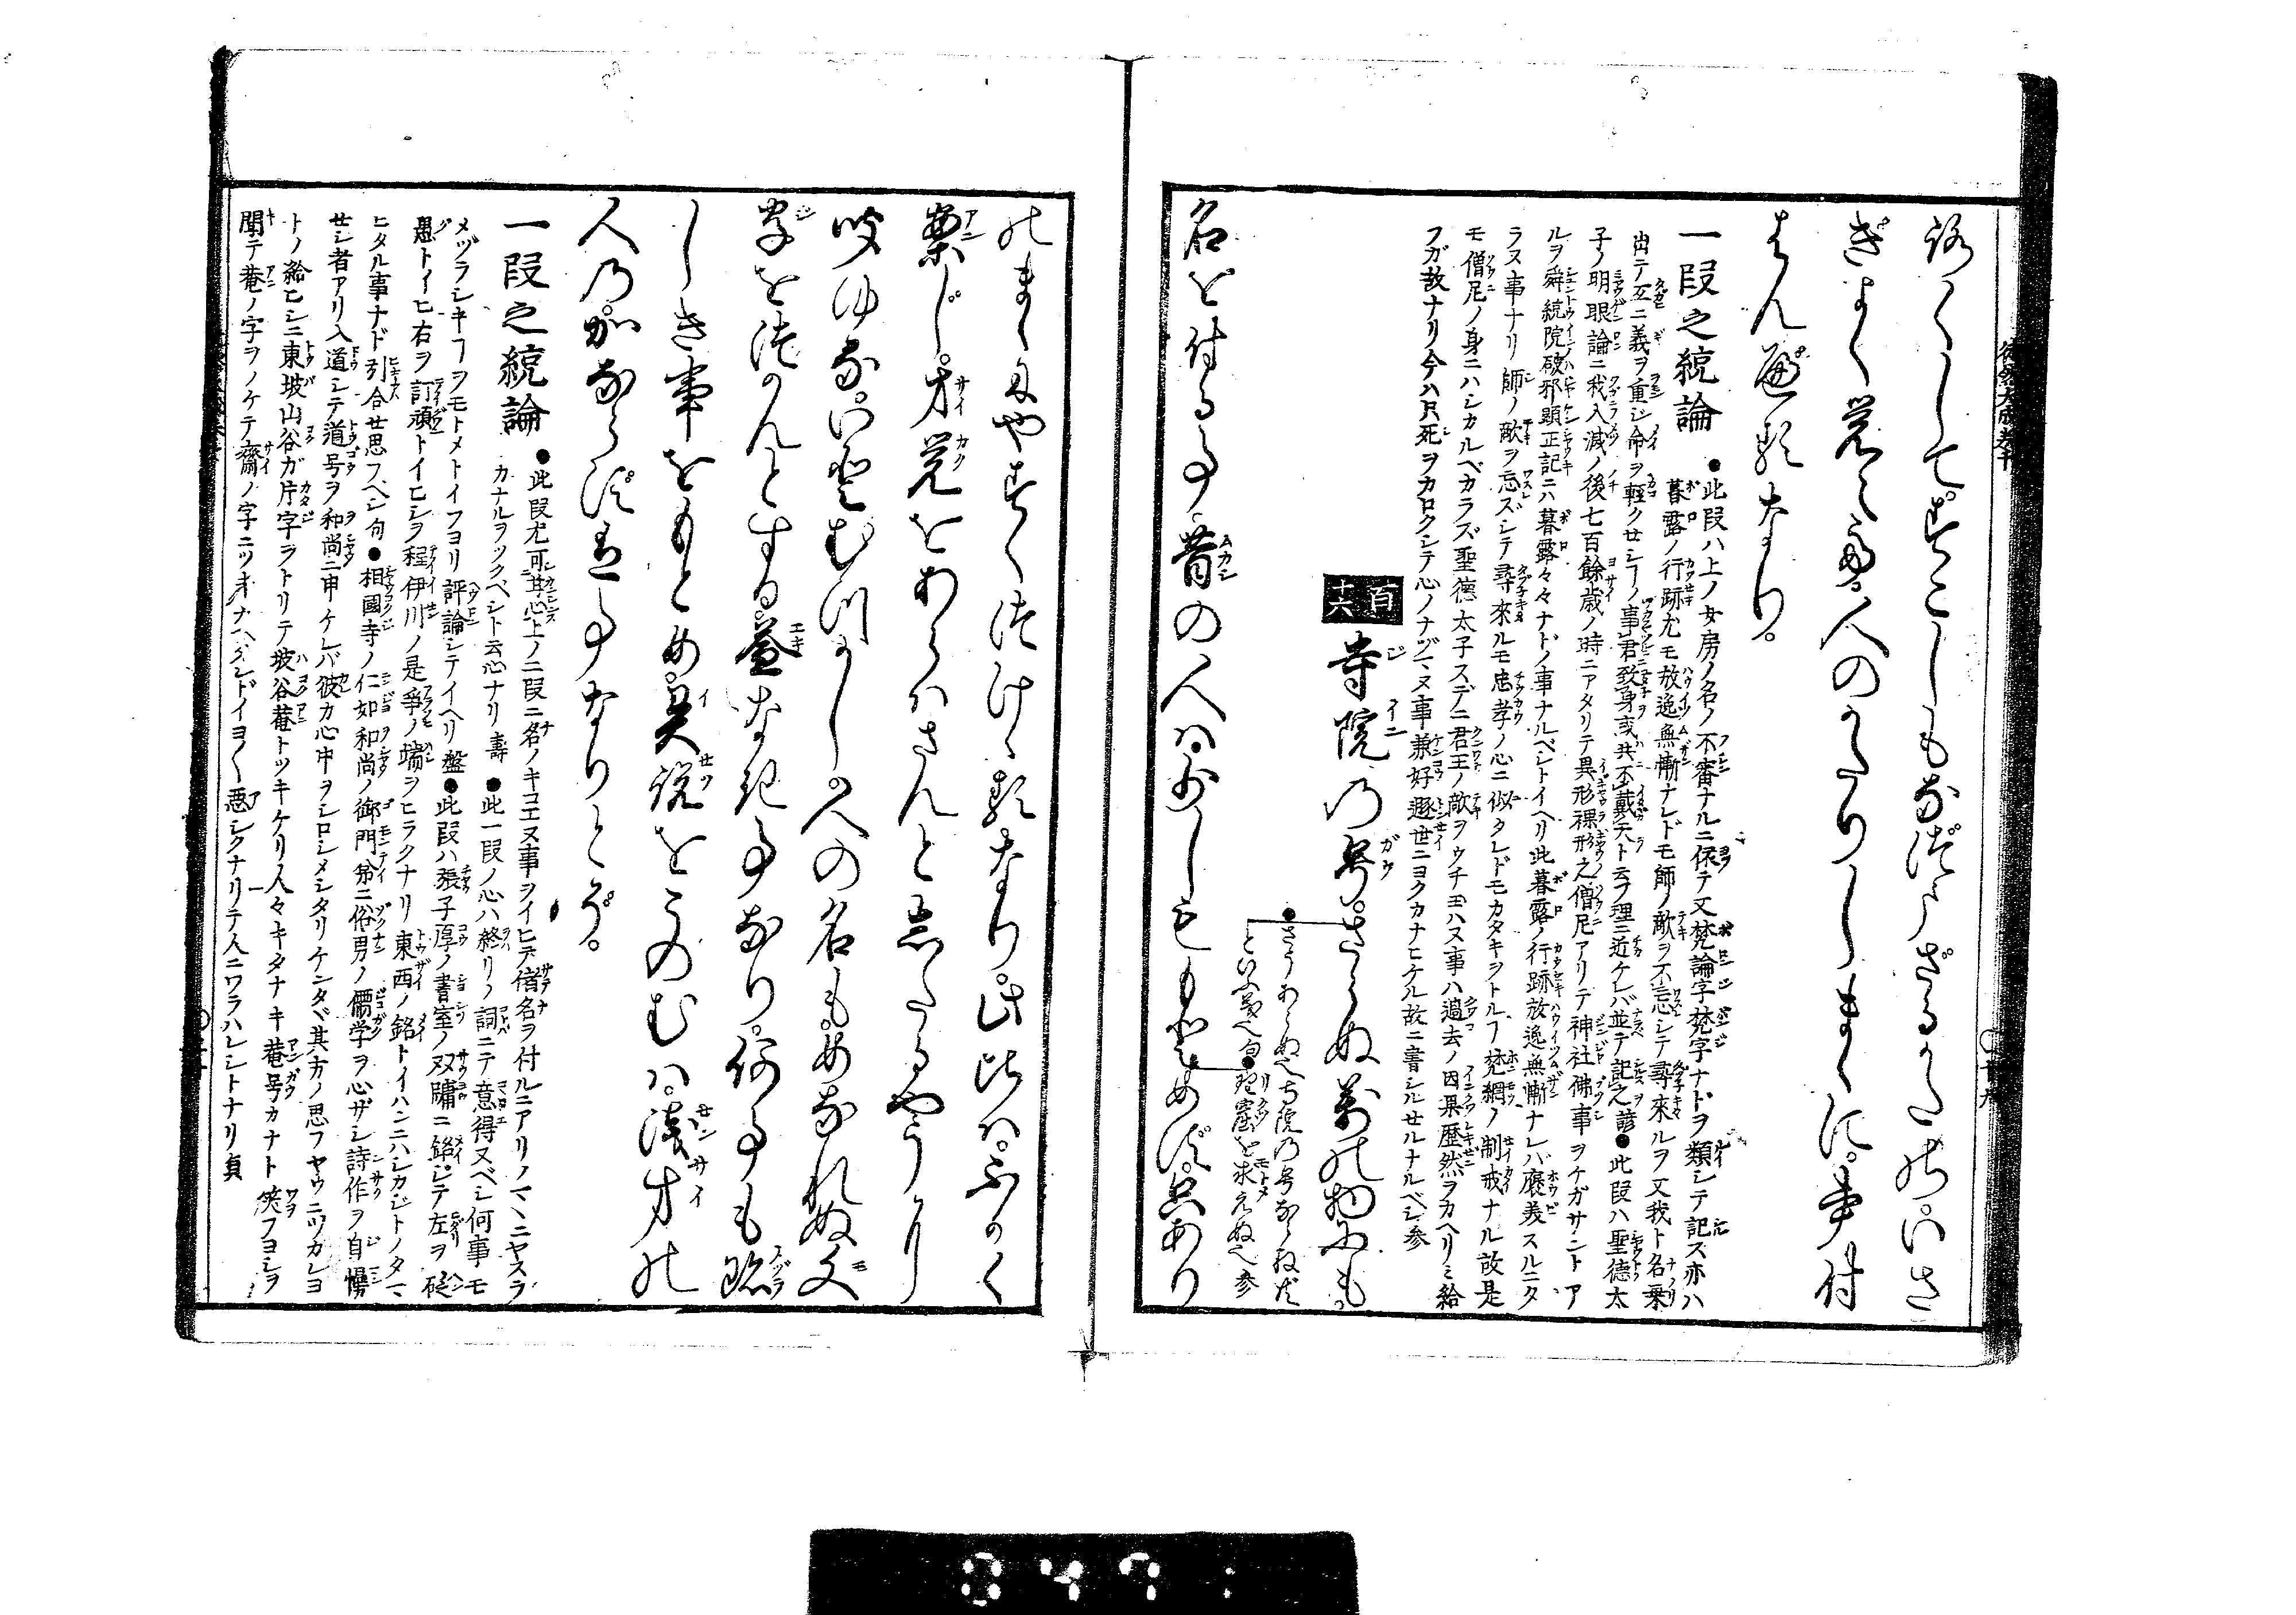 徒然大成巻十
ろくして。すこしもなづまざるかたの。いさ
ぎよく覚えて。人のかたりしまゝに。書付
はんべるなり。
一段之統論
●此段ハ上ノ女房ノ名ノ不審ナルニ依テ又梵論字梵字ナドヲ類シテ記ズ亦ハ
暮露ノ行跡尤モ放逸無慚ナレドモ師ノ敵ヲ不忘シテ尋来ルヲ又我ト名乗
出テ互ニ義ヲ重ジ命ヲ軽クせシ事君致身或共不戴天ト云フ理ニ近ケレバ並テ記之諺●此段ハ聖徳太
子ノ明眼論ニ我入滅ノ後七百餘歳ノ時ニアタリテ異形裸形之僧尼アリテ神社佛事ヲケガサントア
ルヲ舜統院破邪顕正記ニハ暮露々々ナドノ事ナルベシトイヘリ此暮露ノ行跡放逸無慚ナレバ褒美スルニタ
ラヌ事ナリ師ノ敵ヲ忘ズシテ尋来ルモ忠孝ノ心ニ似タレドモカタキヲトルフ梵網ノ制戒ナル故是
モ僧尼ノ身ニハシカルベカラズ聖徳太子スデニ君王ノ敵ヲウチ玉ハヌ事ハ過去ノ因果歴然ヲカヘリミ給
フガ故ナリ今ハ只死ヲカロクシテ心ノナヅマヌ事兼好遁世ニヨクカナヒケル故ニ書シルせルナルベシ参
百十六
寺院の号。さらぬ萬の物にも。
●さらぬハ寺院の号ならねど
といふ義也句●理窟を求えぬ也参
名を付る事。昔の人ハ。少しももとめず。只あり
のまゝに。やすく付けるなり。此比ハ。ふかく
案じ。才覚をあらハさんとしたるやうに
聞ゆる。いとむつかし。人の名も。めなれぬ文
字をつかんとする。益なき事なり。何事も珍
しき事をもとめ。異説をこのむハ。浅才の
人の。かならずある事なりとぞ。
一段之統論
●此段尤可其心上ノ二段ニ名ノキコエヌ事ヲイヒテ偖名ヲ付ルニアリノマヽニヤスラ
カナルヲツクベシト云心ナリ壽●此一段ノ心ハ終リノ詞ニテ意得ヌベシ何事モ
メヅラシキフヲモトメトイフヨリ評論シテイヘリ盤●此段ハ張子厚ノ書室ノ双牖ニ銘ジテ左ヲ砭
愚トイヒ右ヲ訂頑トイヒシヲ程伊川ノ是争ノ端ヲヒラクナリ東西ノ銘トイハンニハシカジトノタマ
ヒタル事ナド引合せ思フベシ句●相國寺ノ仁如和尚ノ御門前ニ俗男ノ儒学ヲ心ザシ詩作ヲ自慢
せシ者アリ入道シテ道号ヲ和尚ニ申ケレバ彼カ心中ヲシロシメシタリケンタヾ其方ノ思フヤウニツカレヨ
トノ給ヒシニ東坡山谷ガ片字ヲトリテ坡谷菴トツキケリ人々キタナキ菴号カナト笑フヨシヲ
聞テ菴ノ字ヲノケテ齋ノ字ニツキナヘタレドイヨ〱悪シクナリテ人ニワラハレシトナリ貞